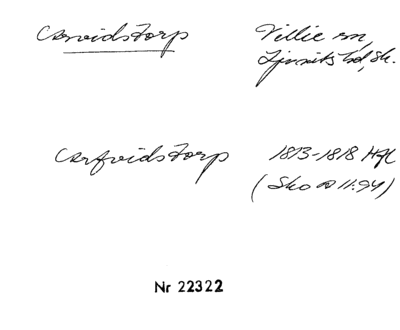 Arvidstorp
Villie sn,
Ljunits hd, Sk.
Arfvidstorp
1813-1818 Hfl
(Sko a 11:94)
Nr 22322